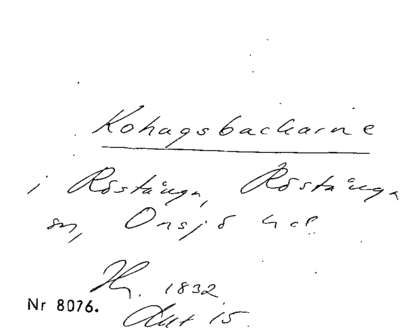 Kohagsbackarne
i Röstånga, Röstånga
sn, Onsjö hd.
1832
Nr 8076. Akt 15.